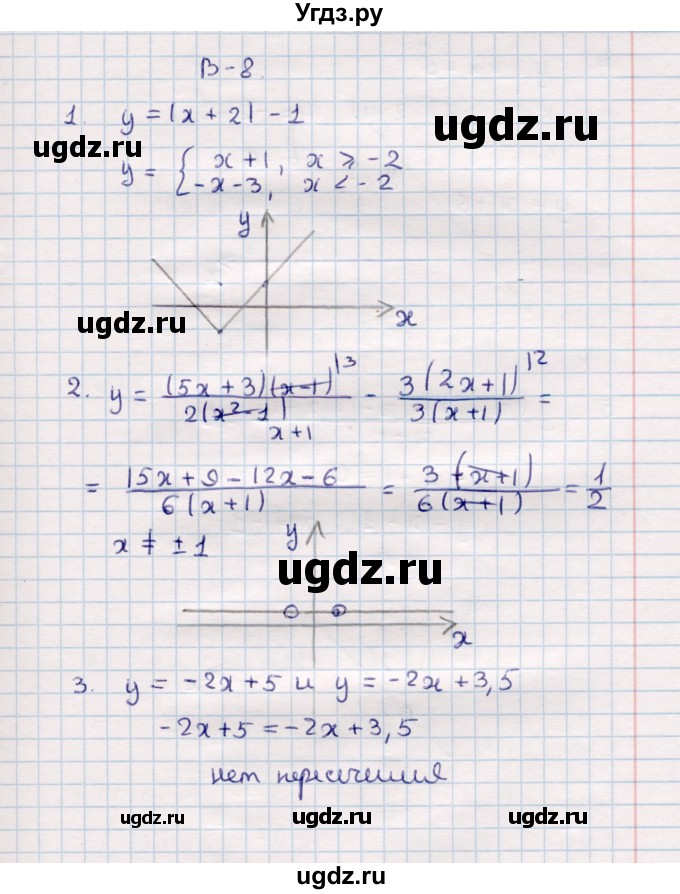 Угдз.ру
В-8.
1. y = |x + 2| - 1
ugdz.ru
ugdz.ru
y = { x + 1, x ⩾ -2
-x - 3, x < -2
y
x
ugdz.ru
2. y = (5x + 3)(x - 1)|3 / 2(x² - 1) x + 1 - 3(2x + 1)|2 / 3(x + 1) =
= 15x + 9 - 12x - 6 / 6(x + 1) = 3(x + 1) / 6(x + 1) = 1/2
x ≠ ± 1
y
ugdz.ru
x
3. y = -2x + 5 и y = -2x + 3,5
-2x + 5 = -2x + 3,5
нет пересечения
ugdz.ru ugdz.ru ugdz.ru
Угдз.ру